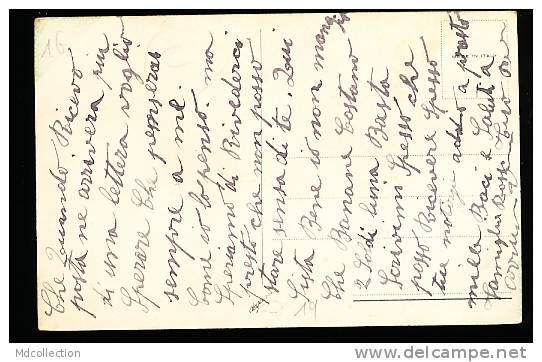 16
Che Quando Ricevo
posta ne arrivera piu
di una lettera voglio
Sperare Che penserai
sempre a me.
Come io lo penso. ma
Speriamo di Rivederci
presto che non posso
stare sensa di te. Qui
sista Bene io non mangio
che Banane Costano
2 Soldi luna Basta
Scrivimi Spesso che
posso Ricevere Spesso
tue notizie adio a presto
mille Baci e Saluti a
Famiglia Rosso
MDcollection
www.delcampe.net